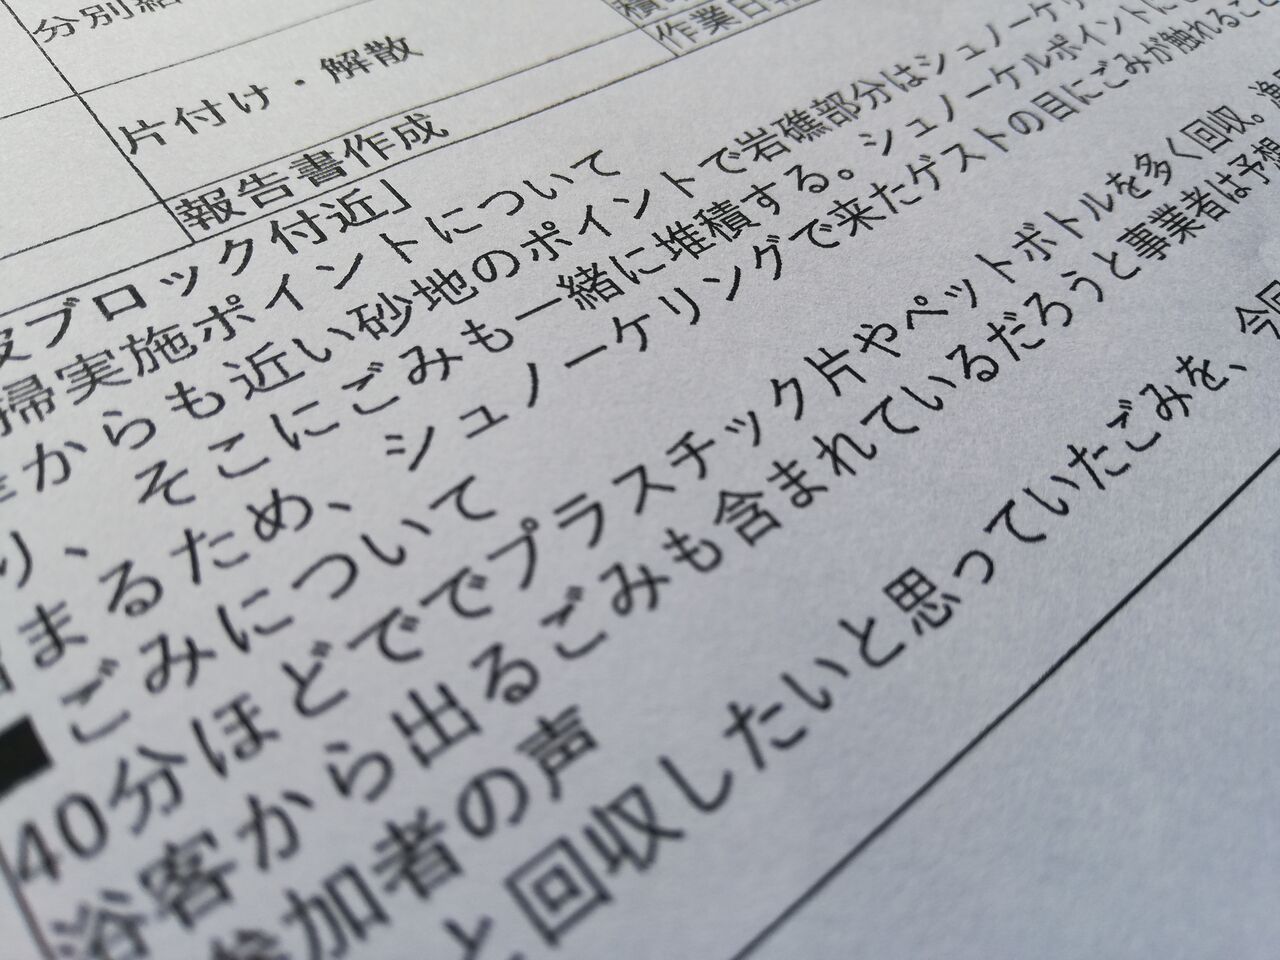 分別
片付け・解散
作業日報
報告書作成
ブロック付近」
掃実施ポイントについて
からも近い砂地のポイントで岩礁部分はシュノーケリ
り、そこにごみも一緒に堆積する。シュノーケルポイントに
まるため、シュノーケリングで来たゲストの目にごみが触れること
ごみについて
40分ほどででプラスチック片やペットボトルを多く回収。漁
浴客から出るごみも含まれているだろうと事業者は予想
参加者の声
と回収したいと思っていたごみを、今回